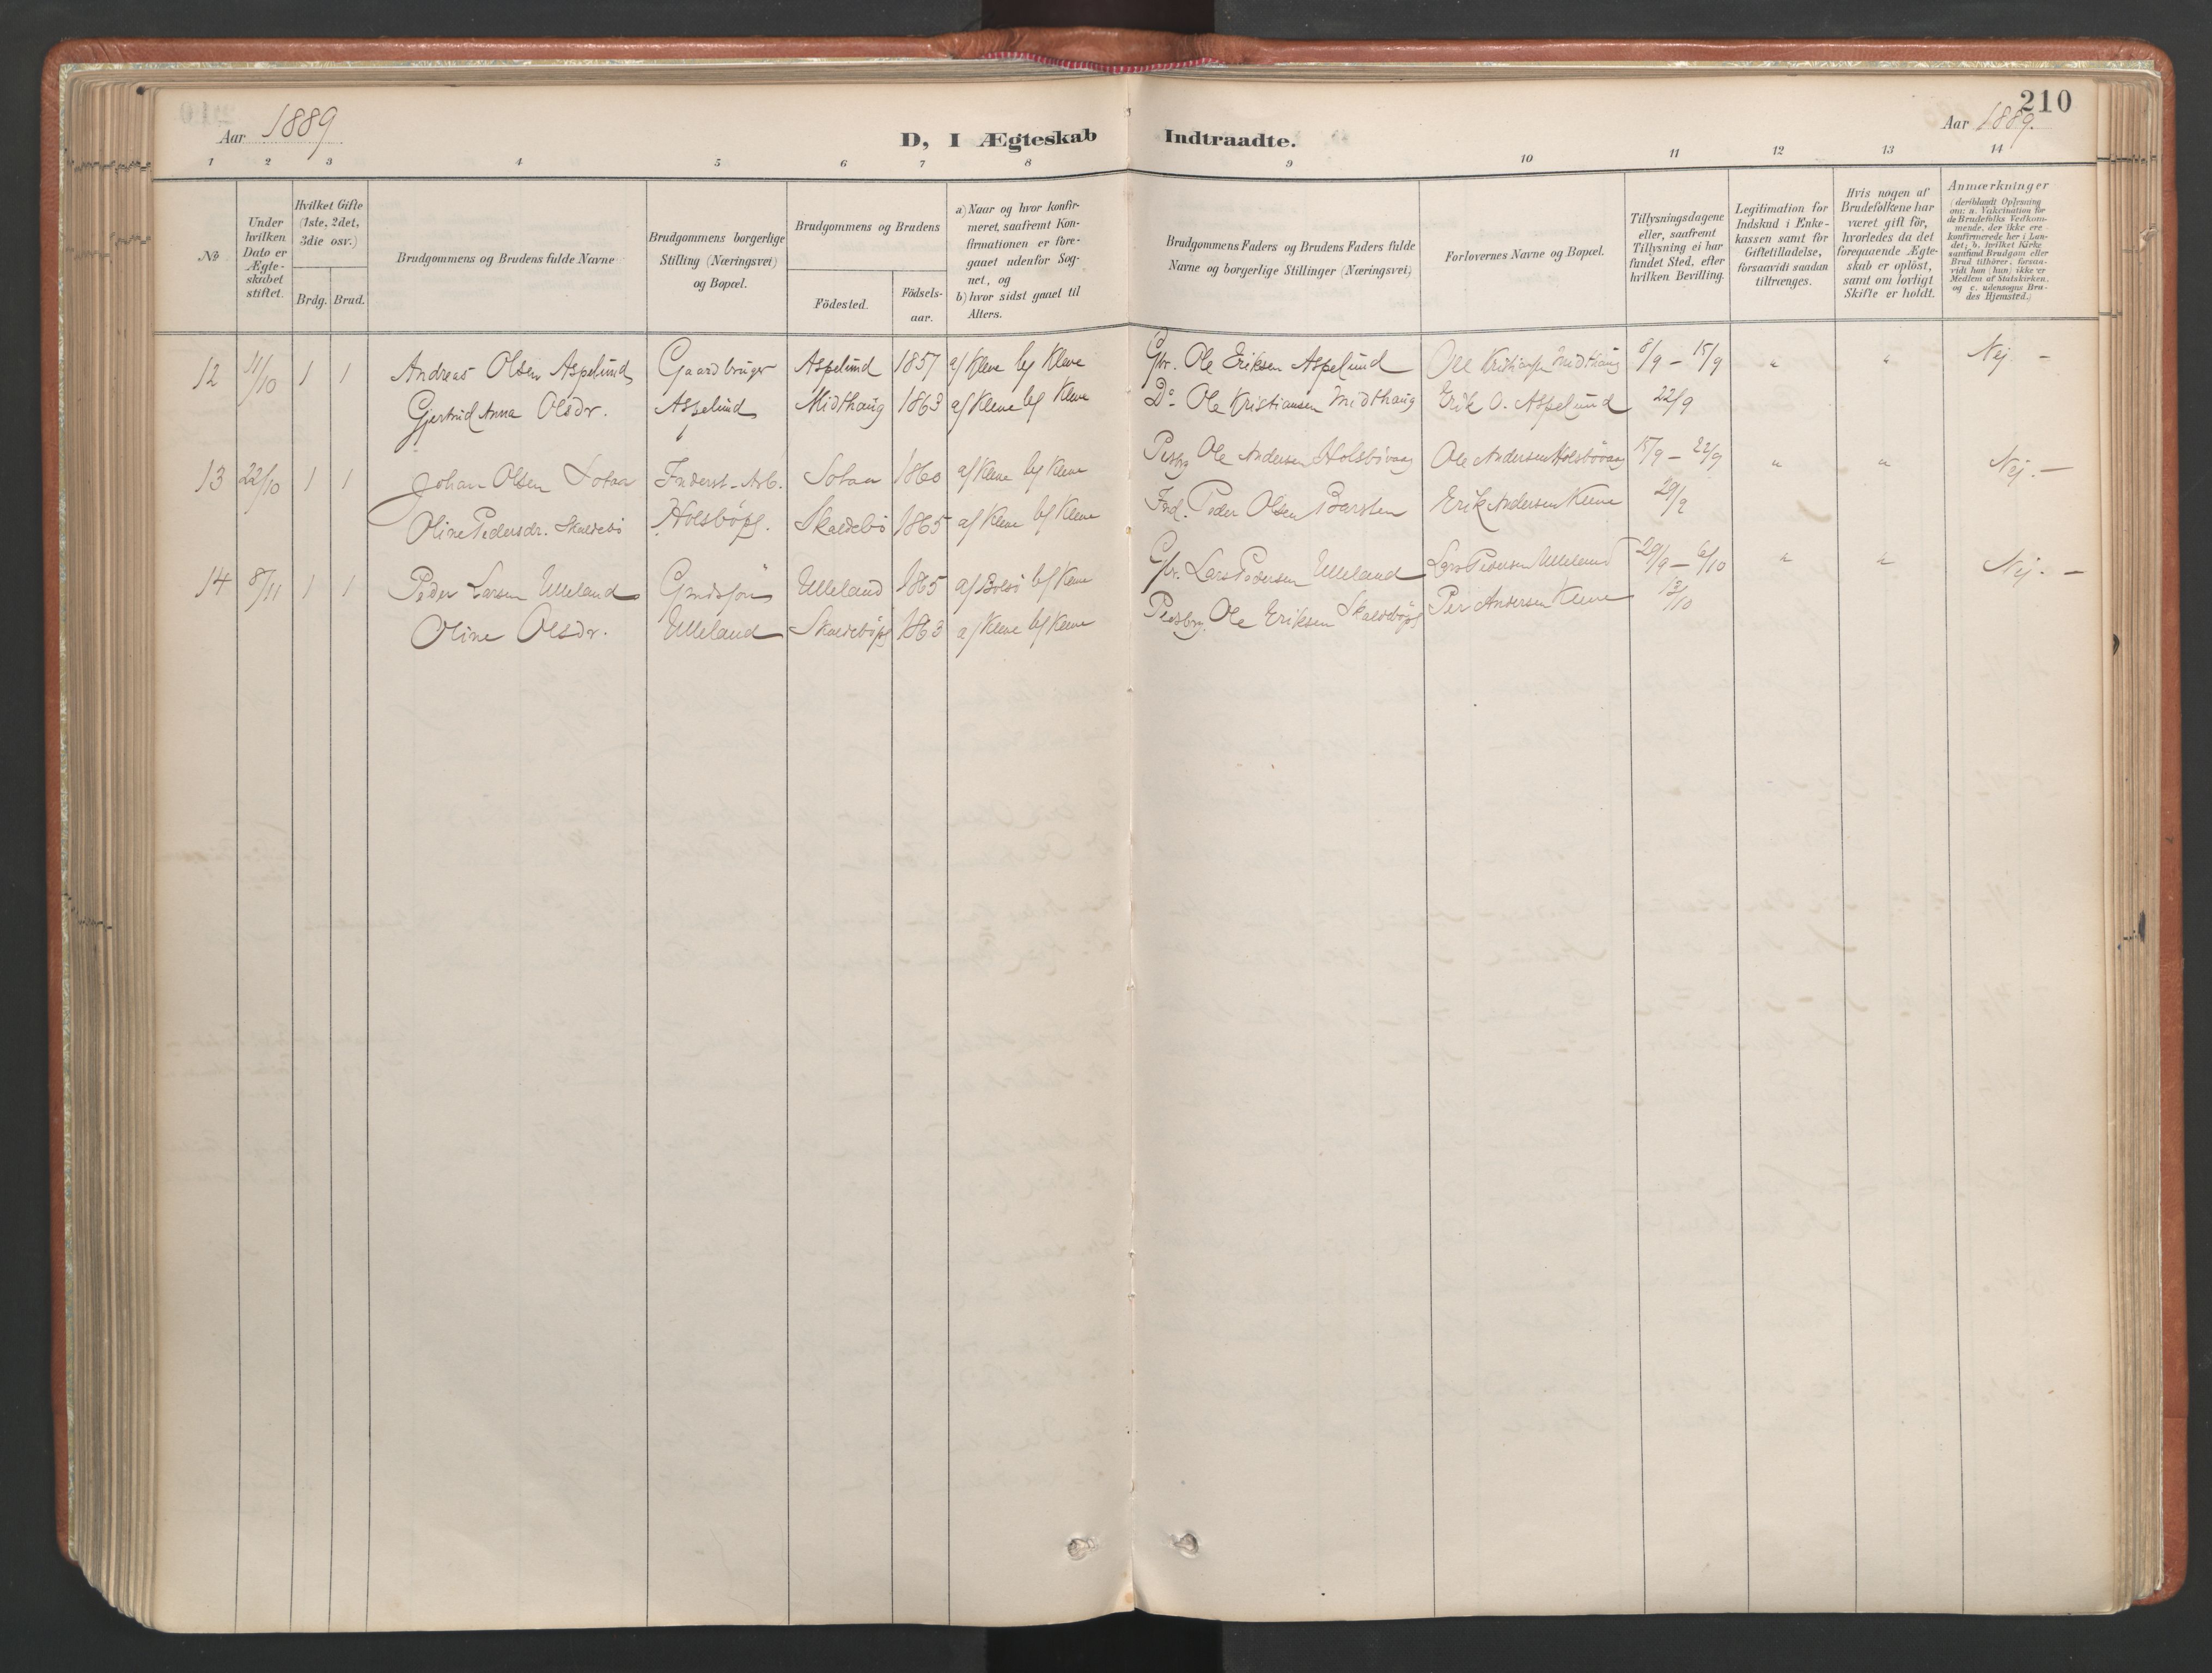 210
Aar 1889
D, I Ægteskab Indtraadte.
Aar 1889.
1 2 3 4 5 6 7 8 9 10 11 12 13 14
No
Under hvilken Dato er Ægteskabet stiftet.
Hvilket Gifte (1ste, 2det, 3die osv.)
Brdg. Brud.
Brudgommens og Brudens fulde Navne
Brudgommens borgerlige Stilling (Næringsvei) og Bopæl.
Brudgommens og Brudens
Födested. Födsels-aar.
a) Naar og hvor konfirmeret, saafremt Konfirmationen er foregaaet udenfor Sognet, og
b) hvor sidst gaaet til Alters.
Brudgommens Faders og Brudens Faders fulde Navne og borgerlige Stillinger (Næringsvei)
Forlovernes Navne og Bopæl.
Tillysningsdagene eller, saafremt Tillysning ei har fundet Sted, efter hvilken Bevilling.
Legitimation for Indskud i Enkekassen samt for Giftetilladelse, forsaavidt saadan tiltrænges.
Hvis nogen af Brudefolkene har været gift för, hvorledes da det foregaaende Ægteskab er oplöst, samt om lovligt Skifte er holdt.
Anmærkninger (deriblandt Oplysning om: a. Vakcination for de Brudefolks Vedkommende, der ikke ere konfirmerede her i Landet; b. hvilket Kirkesamfund Brudgom eller Brud tilhörer, forsaavidt han (hun) ikke er Medlem af Statskirken, og c. udensogns Brudes Hjemsted.)
12 11/10 1 1 Andreas Olsen Aspelund Gaardbruger Aspelund 1857 a/ Kleve b/ Kleve Gbr. Ole Eriksen Aspelund Ole Kristiansen Midthaug 8/9 – 15/9 " " Nej. –
Gjertrud Anna Olsdr. Aspelund Midthaug 1863 a/ Kleve b/ Kleve Do Ole Kristiansen Midthaug Erik O. Aspelund 22/9
13 22/10 1 1 Johan Olsen Sotaa Inderst-Arb. Sotaa 1860 a/ Kleve b/ Kleve Ole Andersen Holsbövaag Ole Andersen Holsbövaag 15/9 – 22/9 " " Nej. –
Oline Pedersdr. Skaldebö Holsböpl. Skaldebö 1865 a/ Kleve b/ Kleve Ind. Peder Olsen Barsten Erik Andersen Kleve 29/9
14 8/11 1 1 Peder Larsen Ulleland Gmdssön Ulleland 1865 a/ Bolsö b/ Kleve Gbr. Lars Pedersen Ulleland Lars Pedersen Ulleland 29/9 – 6/10 " " Nej. –
Oline Olsdr. Ulleland Skaldeböpl 1863 a/ Kleve b/ Kleve Ole Eriksen Skaldeböpl Per Andersen Kleve 13/10